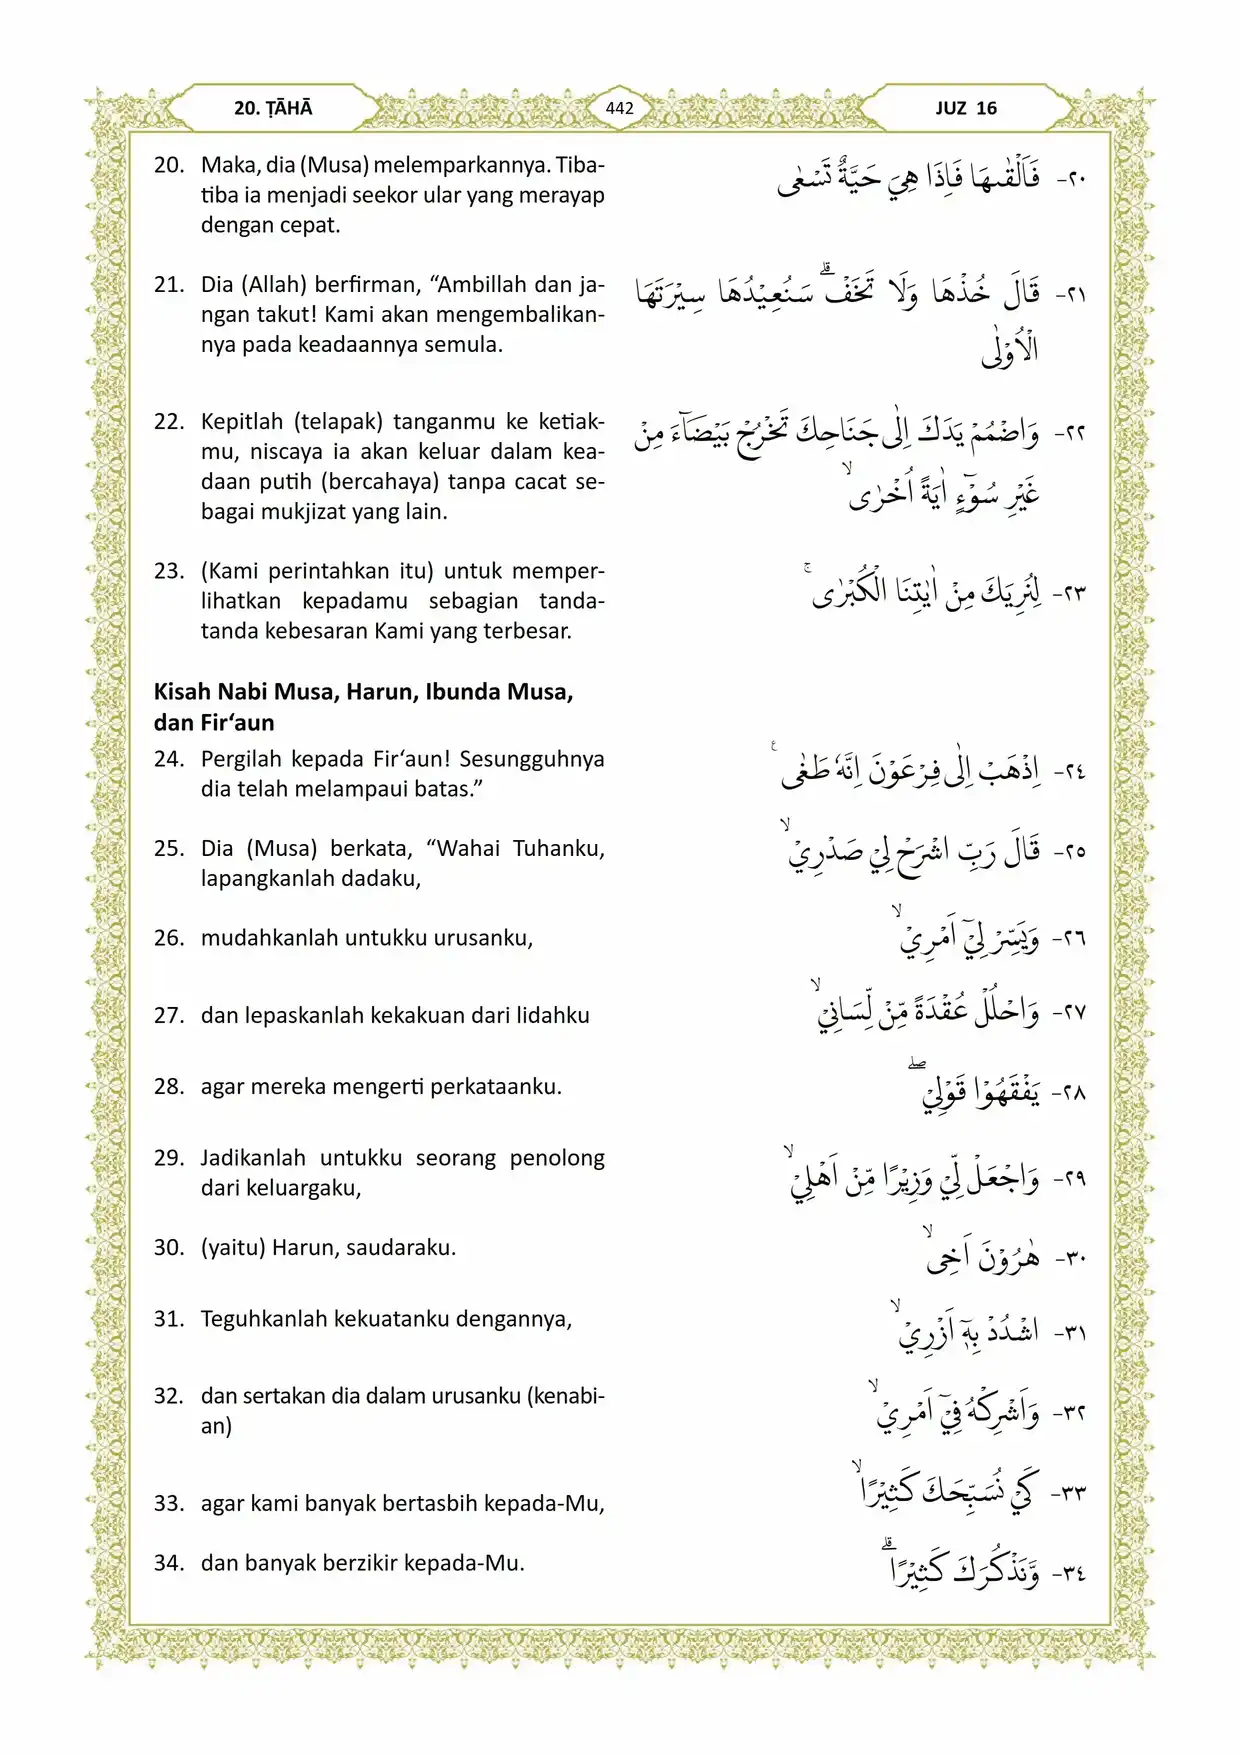 20. ṬĀHĀ
442
JUZ 16
20. Maka, dia (Musa) melemparkannya. Tiba-
tiba ia menjadi seekor ular yang merayap
dengan cepat.
٢٠- فَاَلْقٰىهَا فَاِذَا هِيَ حَيَّةٌ تَسْعٰى
21. Dia (Allah) berfirman, “Ambillah dan ja-
ngan takut! Kami akan mengembalikan-
nya pada keadaannya semula.
٢١- قَالَ خُذْهَا وَلَا تَخَفْۗ سَنُعِيْدُهَا سِيْرَتَهَا
الْاُوْلٰى
22. Kepitlah (telapak) tanganmu ke ketiak-
mu, niscaya ia akan keluar dalam kea-
daan putih (bercahaya) tanpa cacat se-
bagai mukjizat yang lain.
٢٢- وَاضْمُمْ يَدَكَ اِلٰى جَنَاحِكَ تَخْرُجْ بَيْضَاۤءَ مِنْ
غَيْرِ سُوْۤءٍ اٰيَةً اُخْرٰىۙ
23. (Kami perintahkan itu) untuk memper-
lihatkan kepadamu sebagian tanda-
tanda kebesaran Kami yang terbesar.
٢٣- لِنُرِيَكَ مِنْ اٰيٰتِنَا الْكُبْرٰىۚ
Kisah Nabi Musa, Harun, Ibunda Musa,
dan Fir‘aun
24. Pergilah kepada Fir‘aun! Sesungguhnya
dia telah melampaui batas.”
٢٤- اِذْهَبْ اِلٰى فِرْعَوْنَ اِنَّهٗ طَغٰى ࣖ
25. Dia (Musa) berkata, “Wahai Tuhanku,
lapangkanlah dadaku,
٢٥- قَالَ رَبِّ اشْرَحْ لِيْ صَدْرِيْۙ
26. mudahkanlah untukku urusanku,
٢٦- وَيَسِّرْ لِيْٓ اَمْرِيْۙ
27. dan lepaskanlah kekakuan dari lidahku
٢٧- وَاحْلُلْ عُقْدَةً مِّنْ لِّسَانِيْۙ
28. agar mereka mengerti perkataanku.
٢٨- يَفْقَهُوْا قَوْلِيْۖ
29. Jadikanlah untukku seorang penolong
dari keluargaku,
٢٩- وَاجْعَلْ لِّيْ وَزِيْرًا مِّنْ اَهْلِيْۙ
30. (yaitu) Harun, saudaraku.
٣٠- هٰرُوْنَ اَخِىۙ
31. Teguhkanlah kekuatanku dengannya,
٣١- اشْدُدْ بِهٖٓ اَزْرِيْۙ
32. dan sertakan dia dalam urusanku (kenabi-
an)
٣٢- وَاَشْرِكْهُ فِيْٓ اَمْرِيْۙ
33. agar kami banyak bertasbih kepada-Mu,
٣٣- كَيْ نُسَبِّحَكَ كَثِيْرًاۙ
34. dan banyak berzikir kepada-Mu.
٣٤- وَّنَذْكُرَكَ كَثِيْرًاۗ